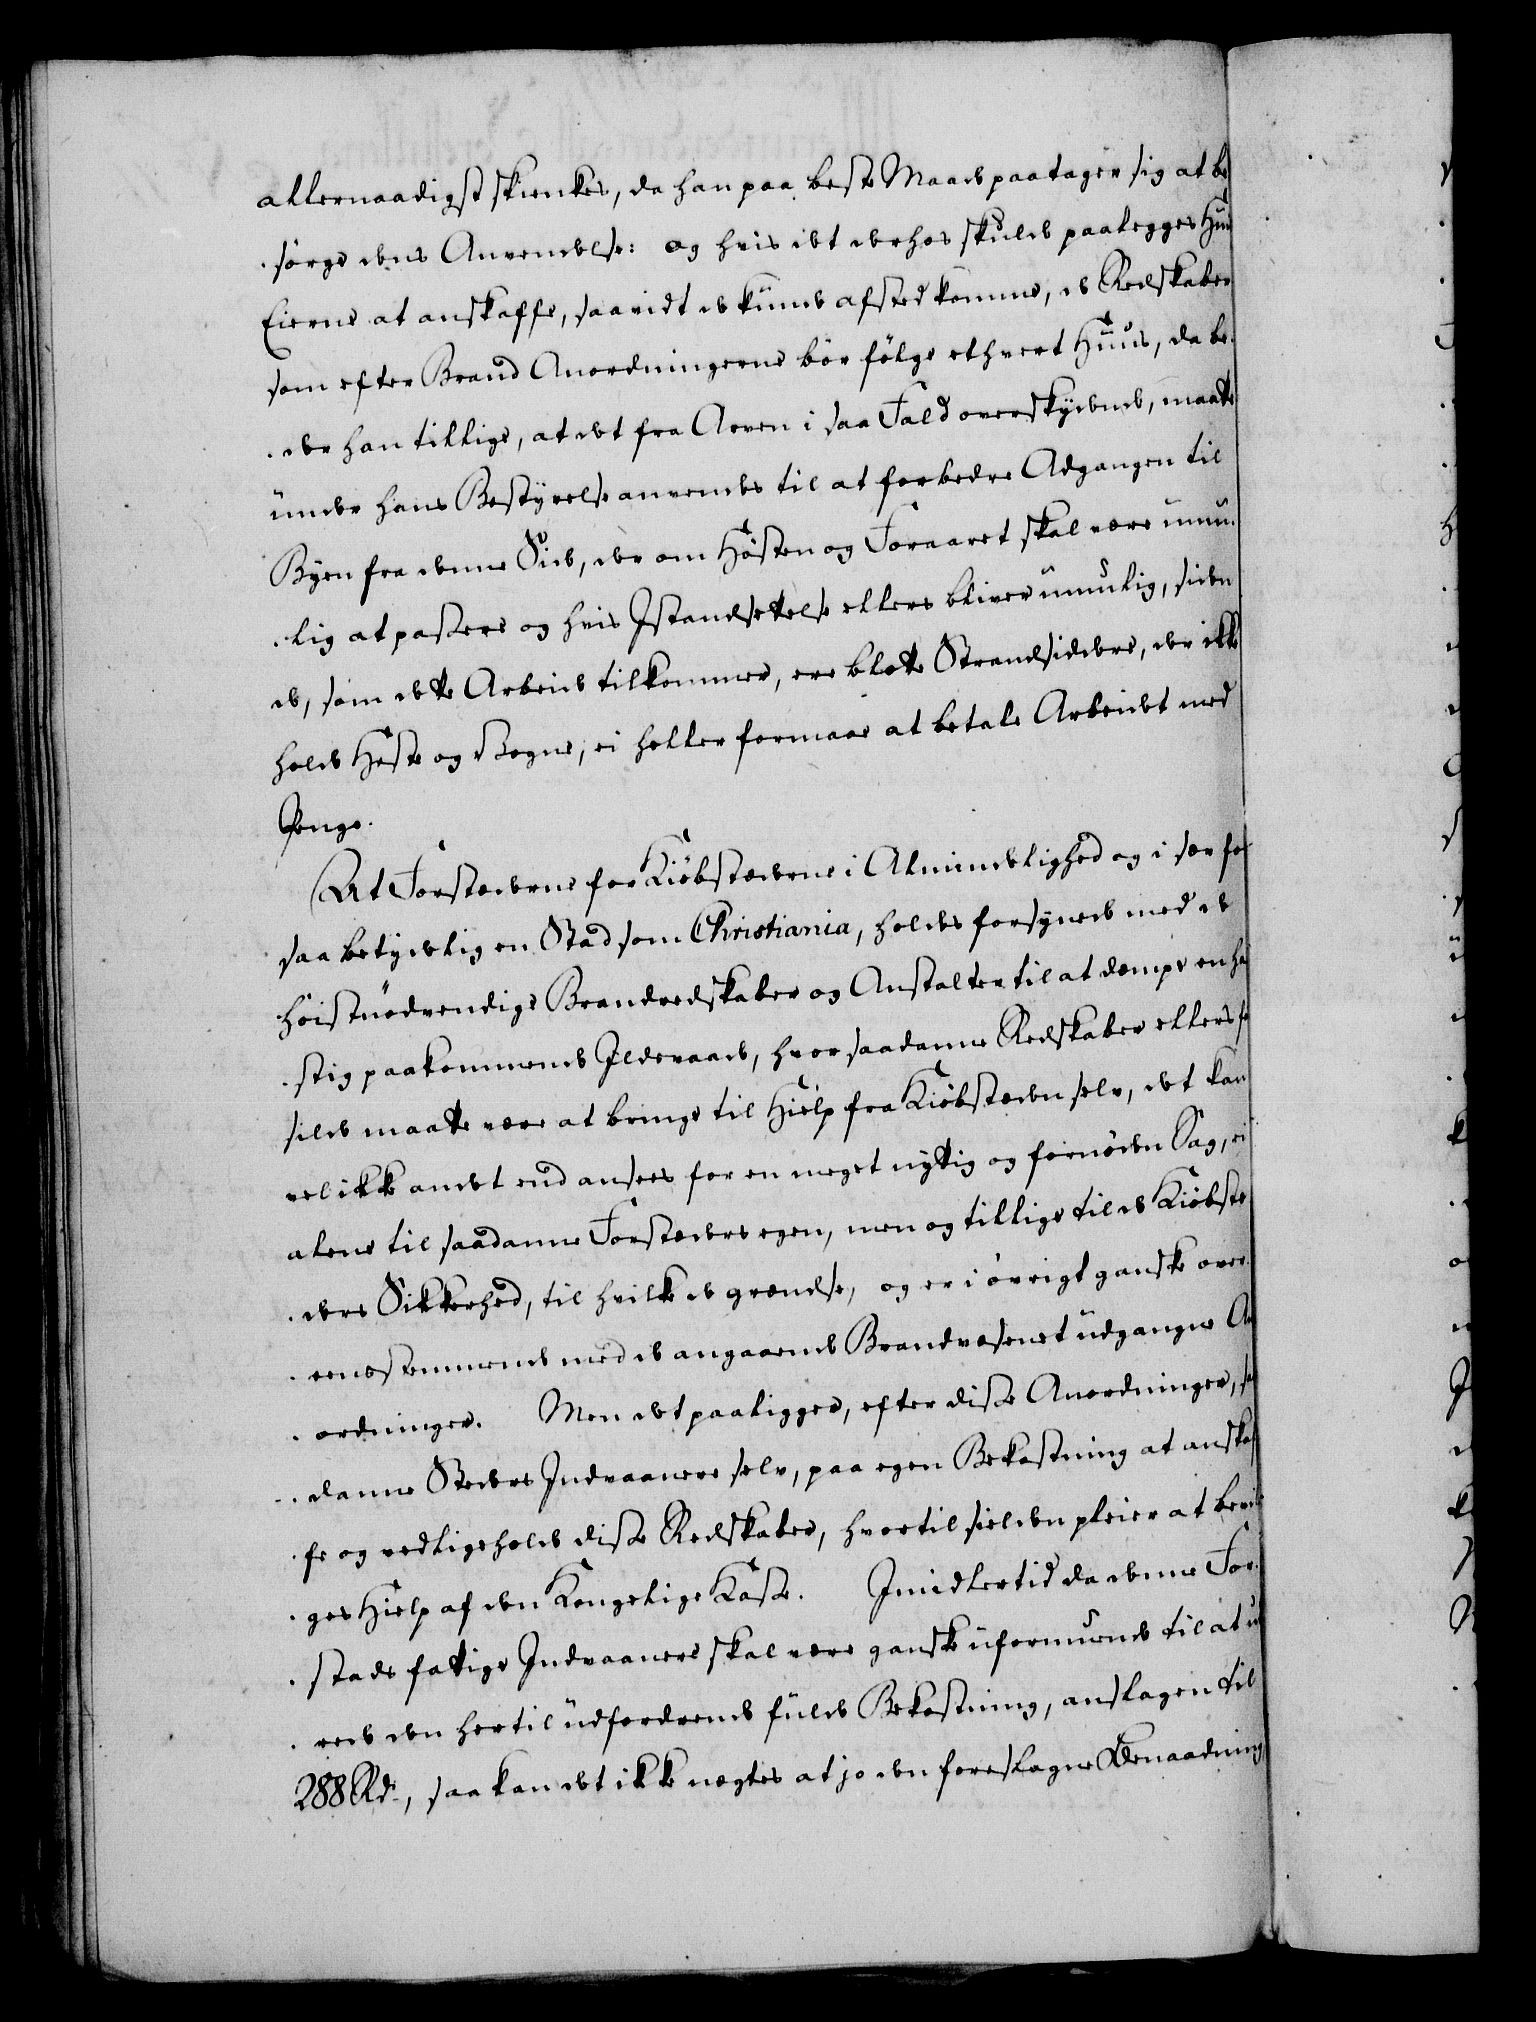 allernaadigst skienkes, da han paa beste Maade paatager sig at be
sörge dens Anvendelse: og hvis det derhos skulde paalegges Huus
Eierne at anskaffe, saavidt de kunde afsted komme, de Redskaber
som efter Brand Anordningerne bör fölge ethvert Huus, da be-
der han tillige, at det fra Arven i saa Fald overskydende, maatte
under hans Bestyrelse anvendes til at forbedre Adgangen til
Byen fra denne Side, der om Hösten og Foraaret skal være umu-
lig at passere og hvis Istandsettelse ellers bliver umulig, siden
de, som dette Arbeide tilkommer, ere blotte Strandsiddere, der ikke
holde Heste og Vogne, ei heller formaae at betale Arbeidet med
Penge.
At Forstæderne for Kiöbstæderne i Almindelighed og i sær for
saa betydelig en Stad som Christiania, holdes forsynede med de
höistnödvendige Brandredskaber og Anstalter til at dempe en ha
stig paakommende Ildsvaade, hvor saadanne Redskaber ellers for
silde maatte være at bringe til Hielp fra Kiöbstæden selv, det kan
vel ikke andet end ansees for en meget nyttig og fornöden Sag, ei
alene til saadanne Forstæders egen, men og tillige til de Kiöbstæ
ders Sikkerhed, til hvilke de grændse, og er i övrigt ganske over-
eensstemmende med de angaaende Brandvæsenet udgangne An
ordninger. Men det paaligger, efter disse Anordninger, saa
danne Steders Indvaanere selv, paa egen Bekostning at anskaf
fe og vedligeholde disse Redskaber, hvortil sielden pleier at bevil
ges Hielp af den Kongelige Kasse. Imidlertid da denne For-
stads fattige Indvaanere skal være ganske uformuende til at ud
rede den hertil udfordrende fulde Bekostning, anslagen til
288 Rd., saa kan det ikke nægtes at jo den foreslagne Benaadning